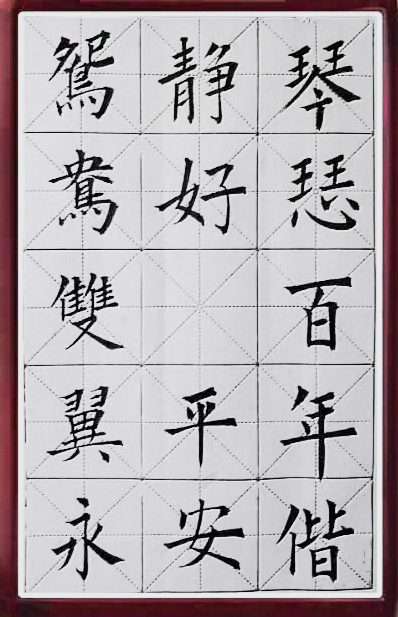 琴瑟百年偕
静好 平安
鴛鴦雙翼永